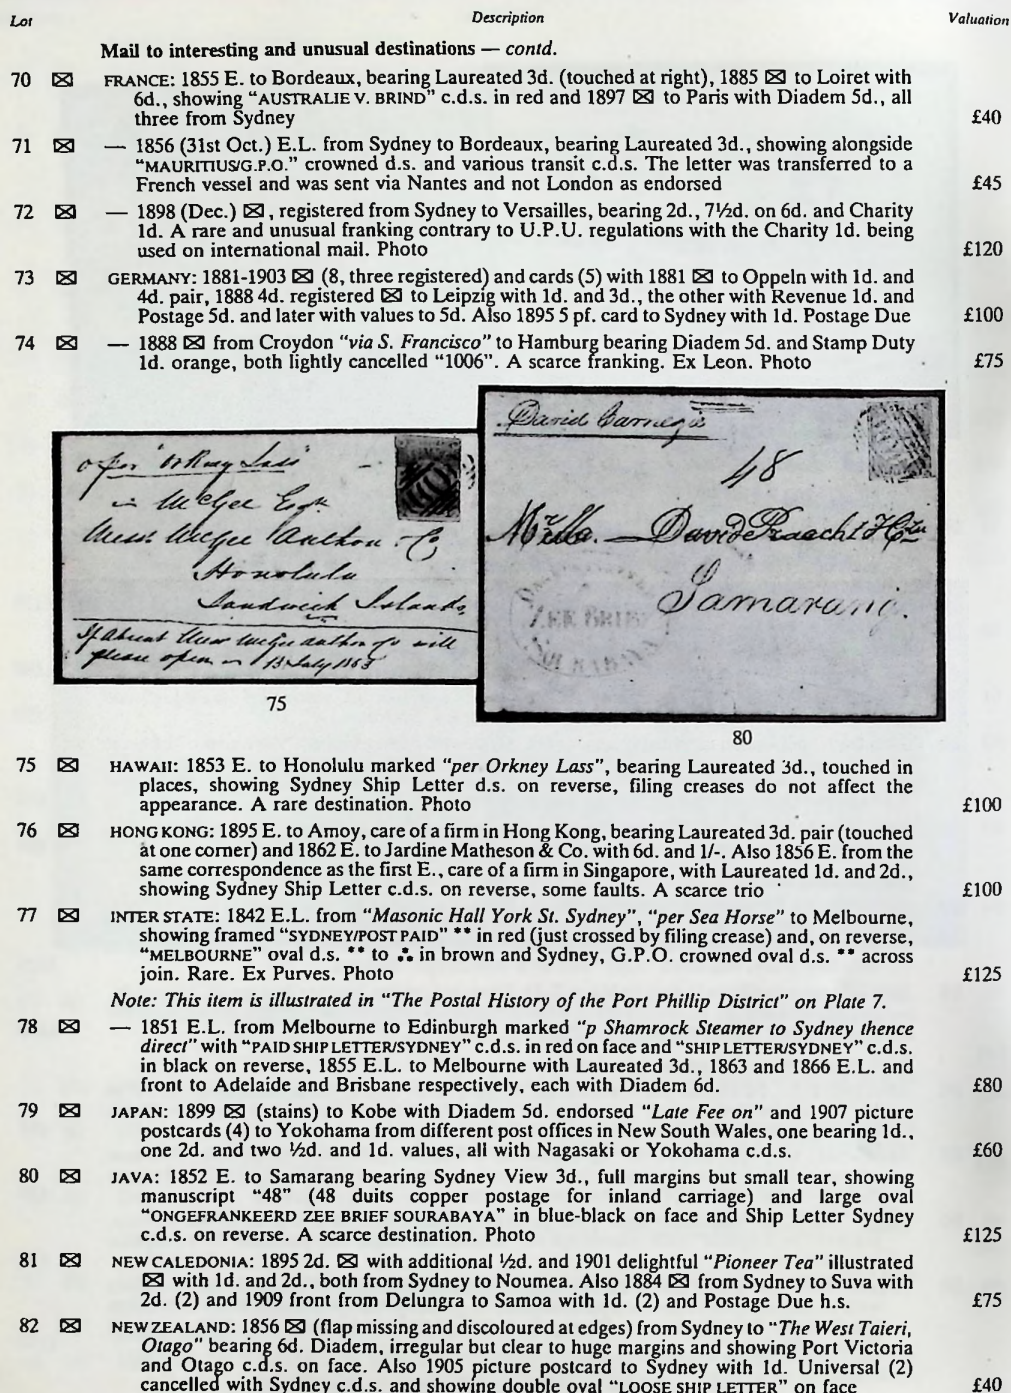 Lot Description Valuation
Mail to interesting and unusual destinations — contd.
70 ✉ FRANCE: 1855 E. to Bordeaux, bearing Laureated 3d. (touched at right), 1885 ✉ to Loiret with
6d., showing "AUSTRALIE V. BRIND" c.d.s. in red and 1897 ✉ to Paris with Diadem 5d., all
three from Sydney £40
71 ✉ — 1856 (31st Oct.) E.L. from Sydney to Bordeaux, bearing Laureated 3d., showing alongside
"MAURITIUS/G.P.O." crowned d.s. and various transit c.d.s. The letter was transferred to a
French vessel and was sent via Nantes and not London as endorsed £45
72 ✉ — 1898 (Dec.) ✉, registered from Sydney to Versailles, bearing 2d., 7½d. on 6d. and Charity
1d. A rare and unusual franking contrary to U.P.U. regulations with the Charity 1d. being
used on international mail. Photo £120
73 ✉ GERMANY: 1881-1903 ✉ (8, three registered) and cards (5) with 1881 ✉ to Oppeln with 1d. and
4d. pair, 1888 4d. registered ✉ to Leipzig with 1d. and 3d., the other with Revenue 1d. and
Postage 5d. and later with values to 5d. Also 1895 5 pf. card to Sydney with 1d. Postage Due £100
74 ✉ — 1888 ✉ from Croydon "via S. Francisco" to Hamburg bearing Diadem 5d. and Stamp Duty
1d. orange, both lightly cancelled "1006". A scarce franking. Ex Leon. Photo £75
per "Orkney Lass"
McGee Esqr
Messrs McGee Co
Honolulu
Sandwich Islands
If absent Messrs McGee will
please open 13 July 1853
75
David Carnegie
48
David & Co
Samarang.
ZEE BRIEF
80
75 ✉ HAWAII: 1853 E. to Honolulu marked "per Orkney Lass", bearing Laureated 3d., touched in
places, showing Sydney Ship Letter d.s. on reverse, filing creases do not affect the
appearance. A rare destination. Photo £100
76 ✉ HONG KONG: 1895 E. to Amoy, care of a firm in Hong Kong, bearing Laureated 3d. pair (touched
at one corner) and 1862 E. to Jardine Matheson & Co. with 6d. and 1/-. Also 1856 E. from the
same correspondence as the first E., care of a firm in Singapore, with Laureated 1d. and 2d.,
showing Sydney Ship Letter c.d.s. on reverse, some faults. A scarce trio £100
77 ✉ INTER STATE: 1842 E.L. from "Masonic Hall York St. Sydney", "per Sea Horse" to Melbourne,
showing framed "SYDNEY/POST PAID" ** in red (just crossed by filing crease) and, on reverse,
"MELBOURNE" oval d.s. ** to ⁂ in brown and Sydney, G.P.O. crowned oval d.s. ** across
join. Rare. Ex Purves. Photo £125
Note: This item is illustrated in "The Postal History of the Port Phillip District" on Plate 7.
78 ✉ — 1851 E.L. from Melbourne to Edinburgh marked "p Shamrock Steamer to Sydney thence
direct" with "PAID SHIP LETTER/SYDNEY" c.d.s. in red on face and "SHIP LETTER/SYDNEY" c.d.s.
in black on reverse, 1855 E.L. to Melbourne with Laureated 3d., 1863 and 1866 E.L. and
front to Adelaide and Brisbane respectively, each with Diadem 6d. £80
79 ✉ JAPAN: 1899 ✉ (stains) to Kobe with Diadem 5d. endorsed "Late Fee on" and 1907 picture
postcards (4) to Yokohama from different post offices in New South Wales, one bearing 1d.,
one 2d. and two ½d. and 1d. values, all with Nagasaki or Yokohama c.d.s. £60
80 ✉ JAVA: 1852 E. to Samarang bearing Sydney View 3d., full margins but small tear, showing
manuscript "48" (48 duits copper postage for inland carriage) and large oval
"ONGEFRANKEERD ZEE BRIEF SOURABAYA" in blue-black on face and Ship Letter Sydney
c.d.s. on reverse. A scarce destination. Photo £125
81 ✉ NEW CALEDONIA: 1895 2d. ✉ with additional ½d. and 1901 delightful "Pioneer Tea" illustrated
✉ with 1d. and 2d., both from Sydney to Noumea. Also 1884 ✉ from Sydney to Suva with
2d. (2) and 1909 front from Delungra to Samoa with 1d. (2) and Postage Due h.s. £75
82 ✉ NEW ZEALAND: 1856 ✉ (flap missing and discoloured at edges) from Sydney to "The West Taieri,
Otago" bearing 6d. Diadem, irregular but clear to huge margins and showing Port Victoria
and Otago c.d.s. on face. Also 1905 picture postcard to Sydney with 1d. Universal (2)
cancelled with Sydney c.d.s. and showing double oval "LOOSE SHIP LETTER" on face £40